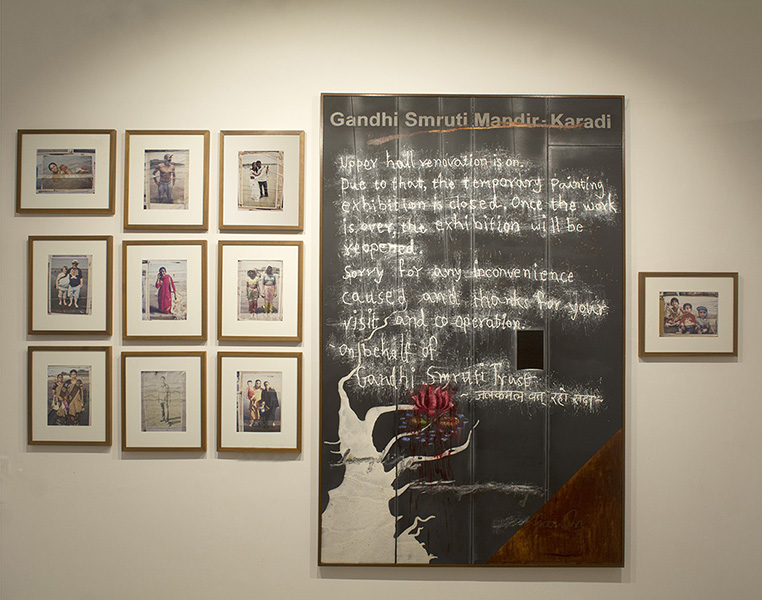 Gandhi Smruti Mandir-Karadi
Upper hall renovation is on.
Due to that, the temporary painting
exhibition is closed, Once the work
is over, the exhibition will be
reopened.
Sorry for any inconvenience
caused and thanks for your
visit and co-operation.
-on behalf of
Gandhi Smruti Trust-
~ जलकमल वत् रहो सदा~